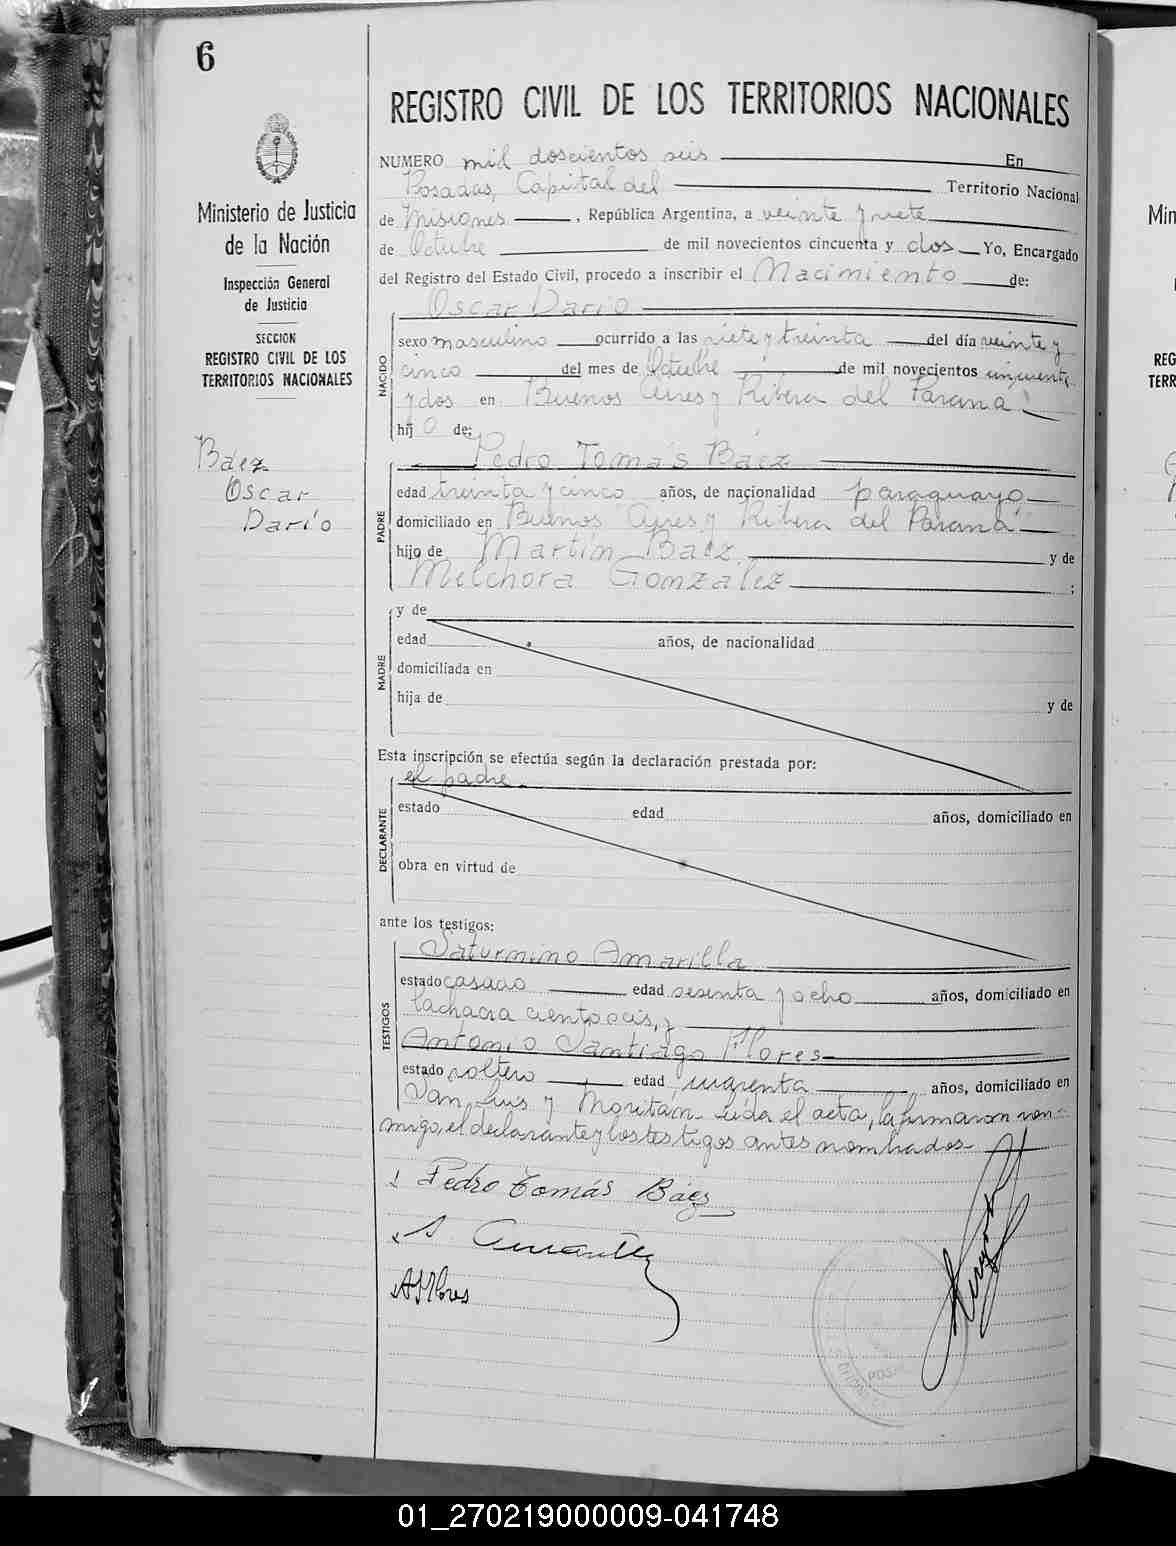 6
REGISTRO CIVIL DE LOS TERRITORIOS NACIONALES
Ministerio de Justicia
de la Nación
Inspección General
de Justicia
SECCION
REGISTRO CIVIL DE LOS
TERRITORIOS NACIONALES
Báez
Oscar
Darío
NUMERO mil doscientos seis En
Posadas, Capital del Territorio Nacional
de Misiones, República Argentina, a veinte y siete
de Octubre de mil novecientos cincuenta y dos Yo, Encargado
del Registro del Estado Civil, procedo a inscribir el Nacimiento de:
Oscar Darío
NACIDO
sexo masculino ocurrido a las siete y treinta del día veinte y
cinco del mes de Octubre de mil novecientos cincuenta
y dos en Buenos Aires y Ribera del Paraná
hijo de:
Pedro Tomás Báez
PADRE
edad treinta y cinco años, de nacionalidad paraguayo
domiciliado en Buenos Aires y Ribera del Paraná
hijo de Martín Báez y de
Melchora González ;
MADRE
y de
edad años, de nacionalidad
domiciliada en
hija de y de
Esta inscripción se efectúa según la declaración prestada por:
el padre.
DECLARANTE
estado edad años, domiciliado en
obra en virtud de
ante los testigos:
Saturnino Amarilla
TESTIGOS
estado casado edad sesenta y ocho años, domiciliado en
la chacra ciento seis, y
Antonio Santiago Flores
estado soltero edad cuarenta años, domiciliado en
San Luis y Moritán. Leída el acta, la firmaron con-
migo, el declarante y los testigos antes nombrados
Pedro Tomás Báez
S. Amarilla
ASFlores
POS
Min
REG
TERR
01_270219000009-041748